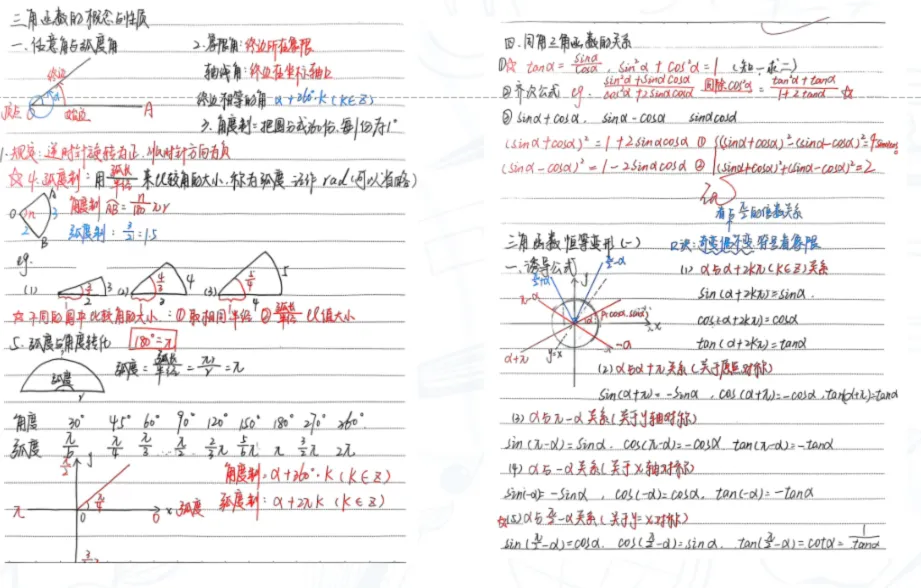 三角函数的概念与性质
一、任意角与弧度角
2.象限角:终边所在象限
轴线角:终边在坐标轴上
终边相等的角 α+360°·K (K∈Z)
3.角度制=把圆分成360份,每1份为1°
终边
顶点 O 始边 A
1.规定:逆时针旋转为正,顺时针方向为负
☆4.弧度制:用 弧长/半径 来比较角的大小,称为弧度 记作 rad (可以省略)
角度制 AB = n/180 πr
弧度制: 3/2 = 1.5
O A B n 3 2
eg.
(1) 3/2 3 2 (2) 4/3 4 3 (3) 5/4 5 4
☆不同的圆中比较角的大小:① 取相同半径 ② 弧长/半径 比值大小
5.弧度与角度转化 180°=π
弧度 r
弧度 = 弧长/半径 = πr/r = π
角度 30° 45° 60° 90° 120° 150° 180° 270° 360°
弧度 π/6 π/4 π/3 π/2 2/3π 5/6π π 3/2π 2π
π/2 y
角度制:α+360°·K (K∈Z)
弧度制:α+2πK (K∈Z)
π π/4 0 0 x 弧度
3/2π
四.同角三角函数的关系
①☆ tanα = sinα/cosα , sin²α + cos²α = 1 (知一求二)
②齐次公式 eg. sin²α+sinαcosα/cos²α+2sinαcosα 同除cos²α = tan²α+tanα/1+2tanα ☆
③ sinα+cosα. sinα-cosα sinαcosα
(sinα+cosα)² = 1+2sinαcosα ① (sinα+cosα)²-(sinα-cosα)²=4sinαcosα
(sinα-cosα)² = 1-2sinαcosα ② (sinα+cosα)²+(sinα-cosα)²=2
有与π/2的倍数关系
三角函数恒等变形(一) 口诀:奇变偶不变 符号看象限
一.诱导公式
(1) α与α+2kπ (K∈Z)关系
sin(α+2kπ)=sinα.
cos(α+2kπ)=cosα
tan(α+2kπ)=tanα
π/2+α y π/2-α
π-α P(cosα,sinα)
α x
α+π y=x -α
(2) α与α+π关系(关于原点对称)
sin(α+π)=-sinα, cos(α+π)=-cosα, tan(α+π)=tanα
(3) α与π-α关系(关于y轴对称)
sin(π-α)=sinα. cos(π-α)=-cosα. tan(π-α)=-tanα
(4) α与-α关系(关于x轴对称)
sin(-α)=-sinα, cos(-α)=cosα, tan(-α)=-tanα
☆(5) α与π/2-α关系(关于y=x对称)
sin(π/2-α)=cosα. cos(π/2-α)=sinα. tan(π/2-α)=cotα=1/tanα